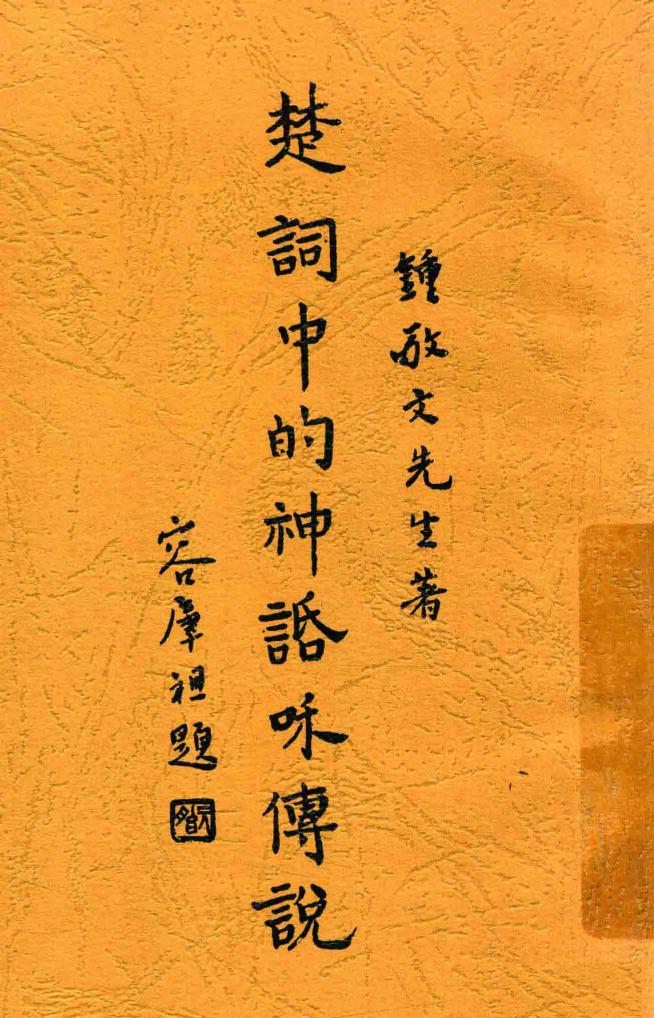 鍾敬文先生著
楚詞中的神䛡咊傳說
容肇祖題